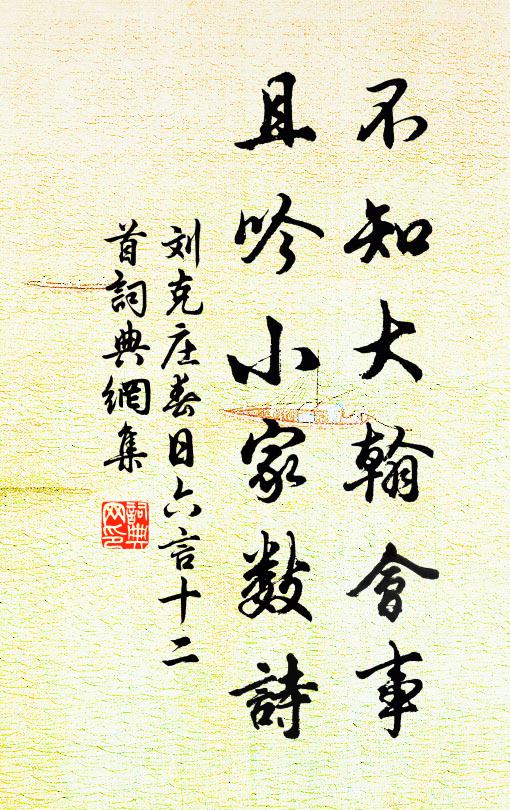 不知大翰會事
且吟小家數詩
刘克庄春日六言十二
首詞典網集
詞典
网印